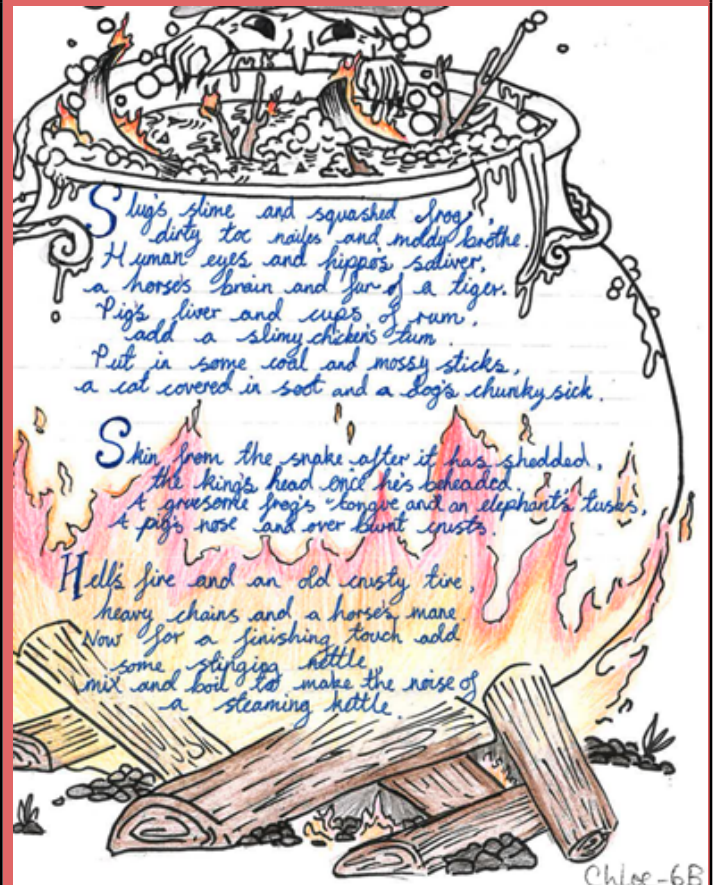 Slug's slime and squashed frog,
dirty toe nailes and moldy brothe.
Human eyes and hippo's saliver,
a horse's brain and fur of a tiger.
Pig's liver and cups of rum,
add a slimy chicken's tum.
Put in some coal and mossy sticks,
a cat covered in soot and a dog's chunky sick.
Skin from the snake after it has shedded,
the king's head once he's beheaded.
A gruesome frog's tongue and an elephant's tusks,
A pig's nose and over burnt crusts.
Hell's fire and an old crusty tire,
heavy chains and a horse's mane.
Now for a finishing touch add
some stinging nettle,
mix and boil to make the noise of
a steaming kettle.
Chloe-6B